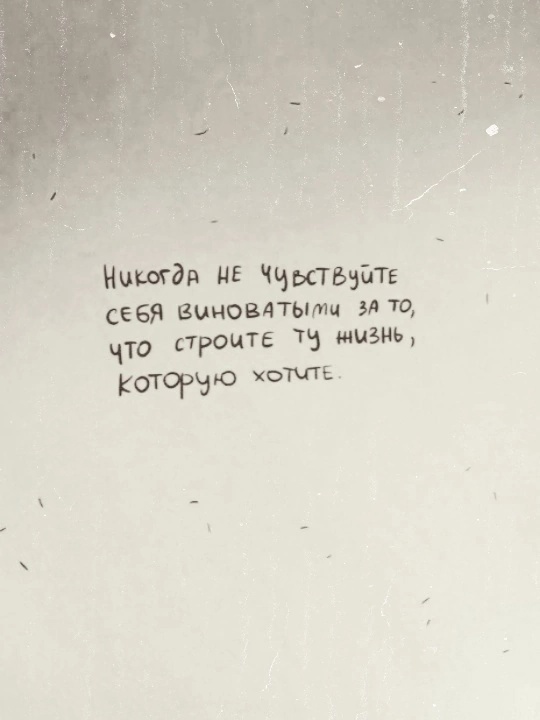 Никогда не чувствуйте
себя виноватыми за то,
что строите ту жизнь,
которую хотите.